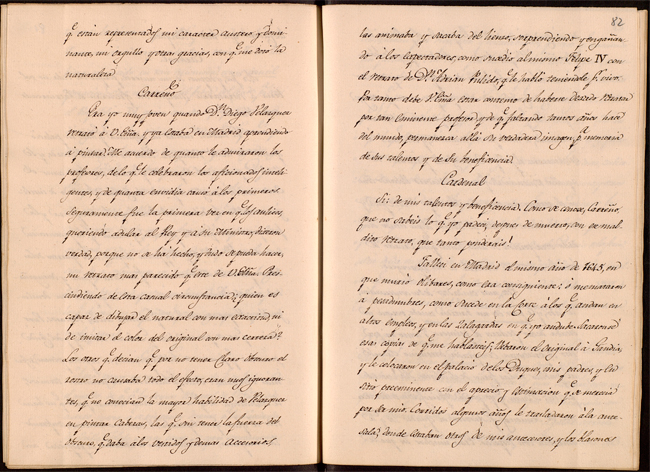 q.e están representados mi caracter austero, y domi-
nante, mi orgullo y otras gracias, con q.e me doró la
naturaleza.
Carreño
Era yo muy joven quando D.n Diego Velazquez
retrató á V. Ema. y ya estaba en Madrid aprendiendo
á pintar. Me acuerdo de quanto le admiraron los
profesores, de lo q.e le celebraron los aficionados inteli-
gentes, y de quanta envidia causó á los primeros.
Seguramente fue la primera vez en q.e los aulicos,
queriendo adular al Rey y á su Ministro, dixeron
verdad, porque no se há hecho, y dudo se pueda hacer,
un retrato mas parecido q.e este de V. Ema. Pres-
cindiendo de esta casual circunstancia, ¿quien es
capaz de dibujar el natural con mas exactitud, ni
de imitar el color del original con mas certeza?
Los otros q.e decian q.e por no tener claro obscuro el
rostro no causaba todo el efecto, eran unos ignoran-
tes, q.e no conocian la mayor habilidad de Velazquez
en pintar Cabezas, las q.e sin tener la fuerza del
obscuro, q.e daba á los vestidos y demas accesorios
82
las animaba y sacaba del lienzo, sorprendiendo y engañan-
do á los espectadores, como sucedió al mismo Felipe IV con
el retrato de D.n Adrian Pulido, q.e le habló teniendole p.r vivo.
Por tanto debe V. Ema estar contento de haberse dexado retratar
por tan eminente profesor y de q.e faltando tantos años hace
del mundo, permanezca allá su verdadera imagen, p.a memoria
de sus talentos y de su beneficencia.
Cardenal
Si: de mis talentos y beneficencia. Como se conoce, Carreño,
que no sabeis lo q.e yo padecí, despues de muerto, con ese mal-
dito retrato, que tanto ponderais!
Fallecí en Madrid el mismo año de 1645, en
que murió Olibares, como era consiguiente: ó me mataron
á pesadumbres, como sucede en la Corte á los q.e andan en
altos empleos, y en las zalagardas en q.e yo anduve. Hicieronse
esas copias de q.e me hablasteis; llebaron el original á Gandia,
y le colocaron en el palacio de los Duques, mis padres, y en
sitio preeminente con el aprecio y estimacion q.e merecia
por ser mio. Corridos algunos años le trasladaron á la ante-
sala, donde estaban otros de mis antecesores, y los blasones